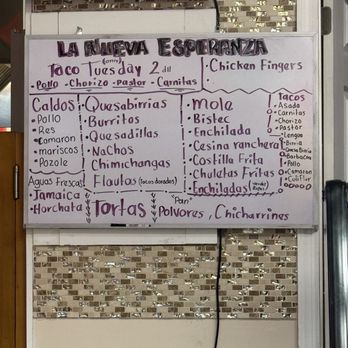 LA NUEVA ESPERANZA
Taco Tuesday 2 dll
• Pollo • Chorizo • Pastor • Carnitas
• Chicken Fingers
Caldos
• Pollo
• Res
• Camaron
• mariscos
• Pozole
Aguas Frescas
• Jamaica
• Horchata
• Quesabirrias
• Burritos
• Quesadillas
• Nachos
• Chimichangas
• Flautas (tacos dorados)
Tortas
• Mole
• Bistec
• Enchilada
• Cesina ranchera
• Costilla Frita
• Chuletas Fritas
• Enchiladas
"Pan"
Polvores, Chicharrines
Tacos
• Asada
• Carnitas
• Chorizo
• Pastor
• Lengua
• Birria
• Barbacoa
• Pollo
• Camaron